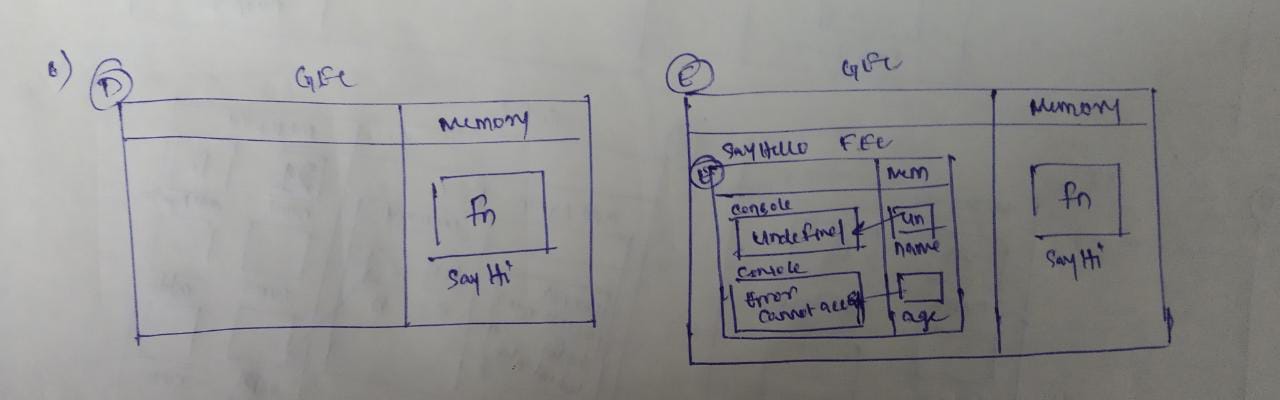 6)
D
GEC
Memory
fn
Say Hi
E
GEC
Memory
SayHello FEC
Mem
Console
Undefined
un
name
Console
Error
Cannot access
age
fn
Say Hi